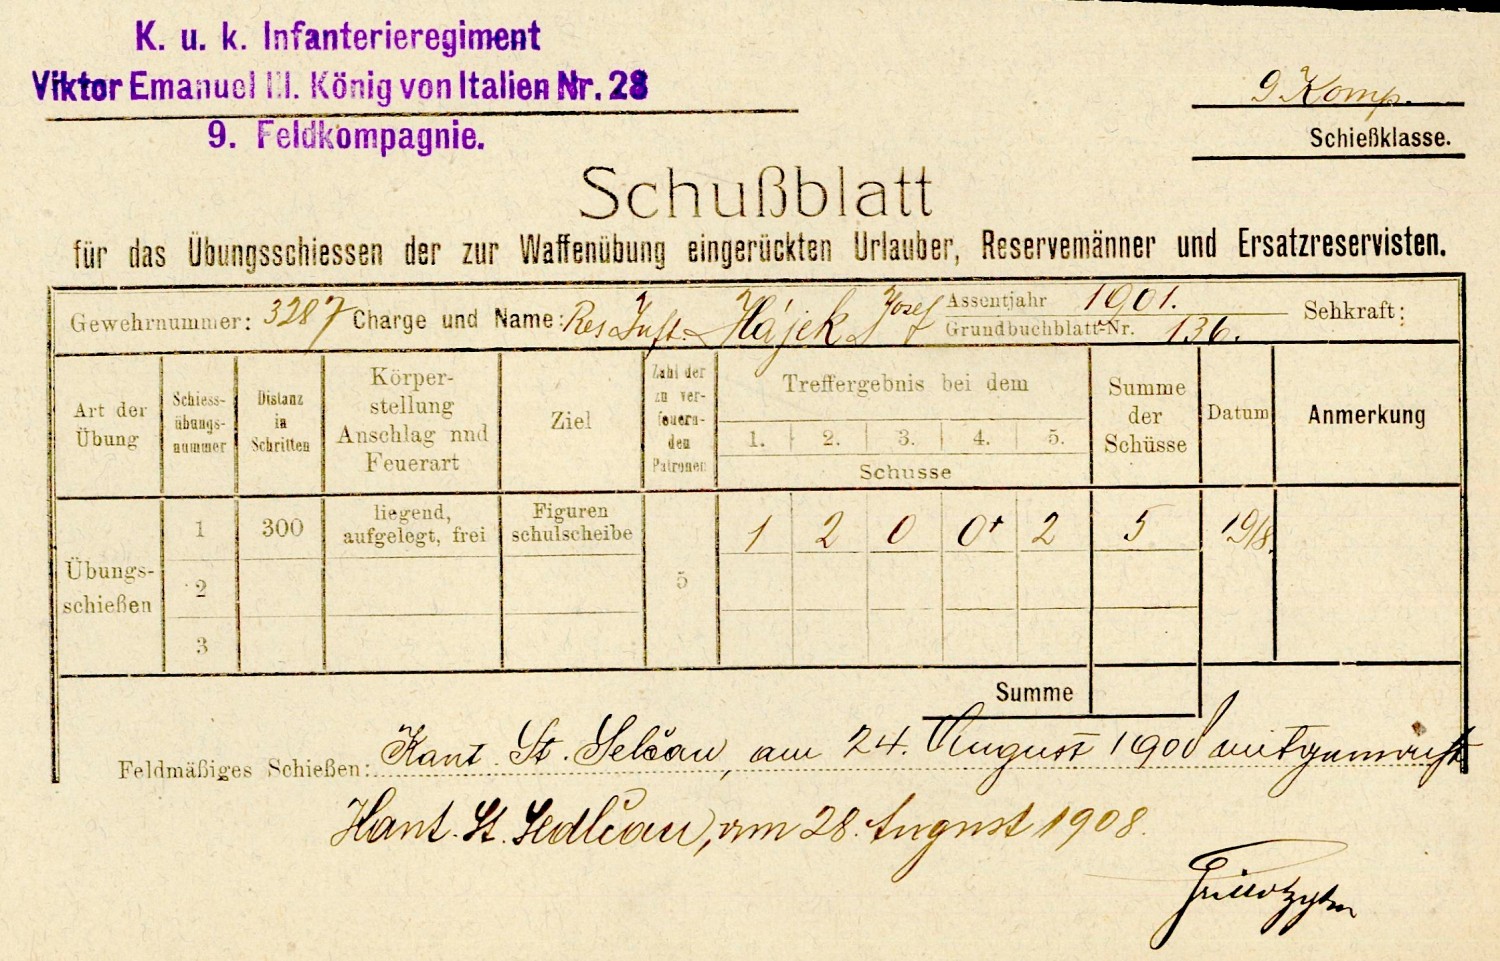 K. u. k. Infanterieregiment
Viktor Emanuel III. König von Italien Nr. 28
9. Feldkompagnie.
9 Komp.
Schießklasse.
Schußblatt
für das Übungsschiessen der zur Waffenübung eingerückten Urlauber, Reservemänner und Ersatzreservisten.
Gewehrnummer: 3287 Charge und Name: Res Inft. Hájek Josef Assentjahr 1901. Grundbuchblatt-Nr. 136. Sehkraft:
Art der Übung
Schiess-übungs-nummer
Distanz in Schritten
Körper-stellung Anschlag nnd Feuerart
Ziel
Zahl der zu ver-feuern-den Patronen
Treffergebnis bei dem
1. 2. 3. 4. 5.
Schusse
Summe der Schüsse
Datum
Anmerkung
Übungs-schießen
1 300 liegend, aufgelegt, frei Figuren schulscheibe 1 2 0 0+ 2 5 19/8.
2 5
3
Summe
Feldmäßiges Schießen: Kant. St. Selčau, am 24. August 1908
Kant. St. Sedlčau, am 28. August 1908.